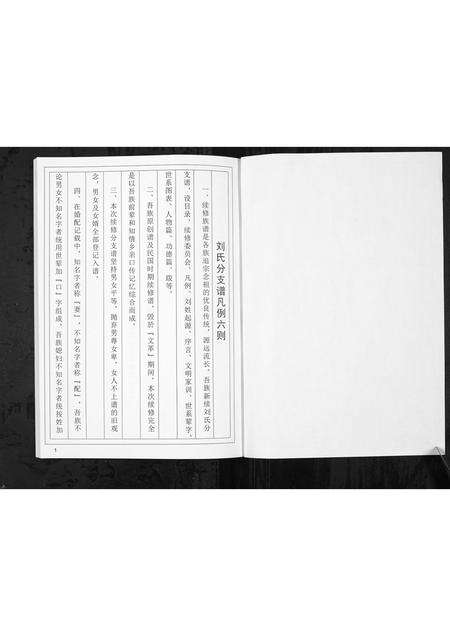 刘氏分支谱凡例六则
一、续修族谱是各族追宗念祖的优良传统，源远流长，吾族新续刘氏分
支谱，设目录，续修委员会、凡例、刘姓起源、序言、文明家训、世系辈字、
世系图表、人物篇、功德篇、跋等。
二、吾族原创谱及民国时期续修谱，毁於『文革』期间，本次续修完全
是以吾族前辈和知情乡亲口传记忆综合而成。
三、本次续修分支谱坚持男女平等，抛弃男尊女卑，女人不上谱的旧观
念，男女及女婿全部登记入谱。
四、在婚配记载中，知名字者称『娶』，不知名字者称『配』，吾族不
论男女不知名字者统用世辈加『口』字组成，吾族媳妇不知名字者统按姓加
1